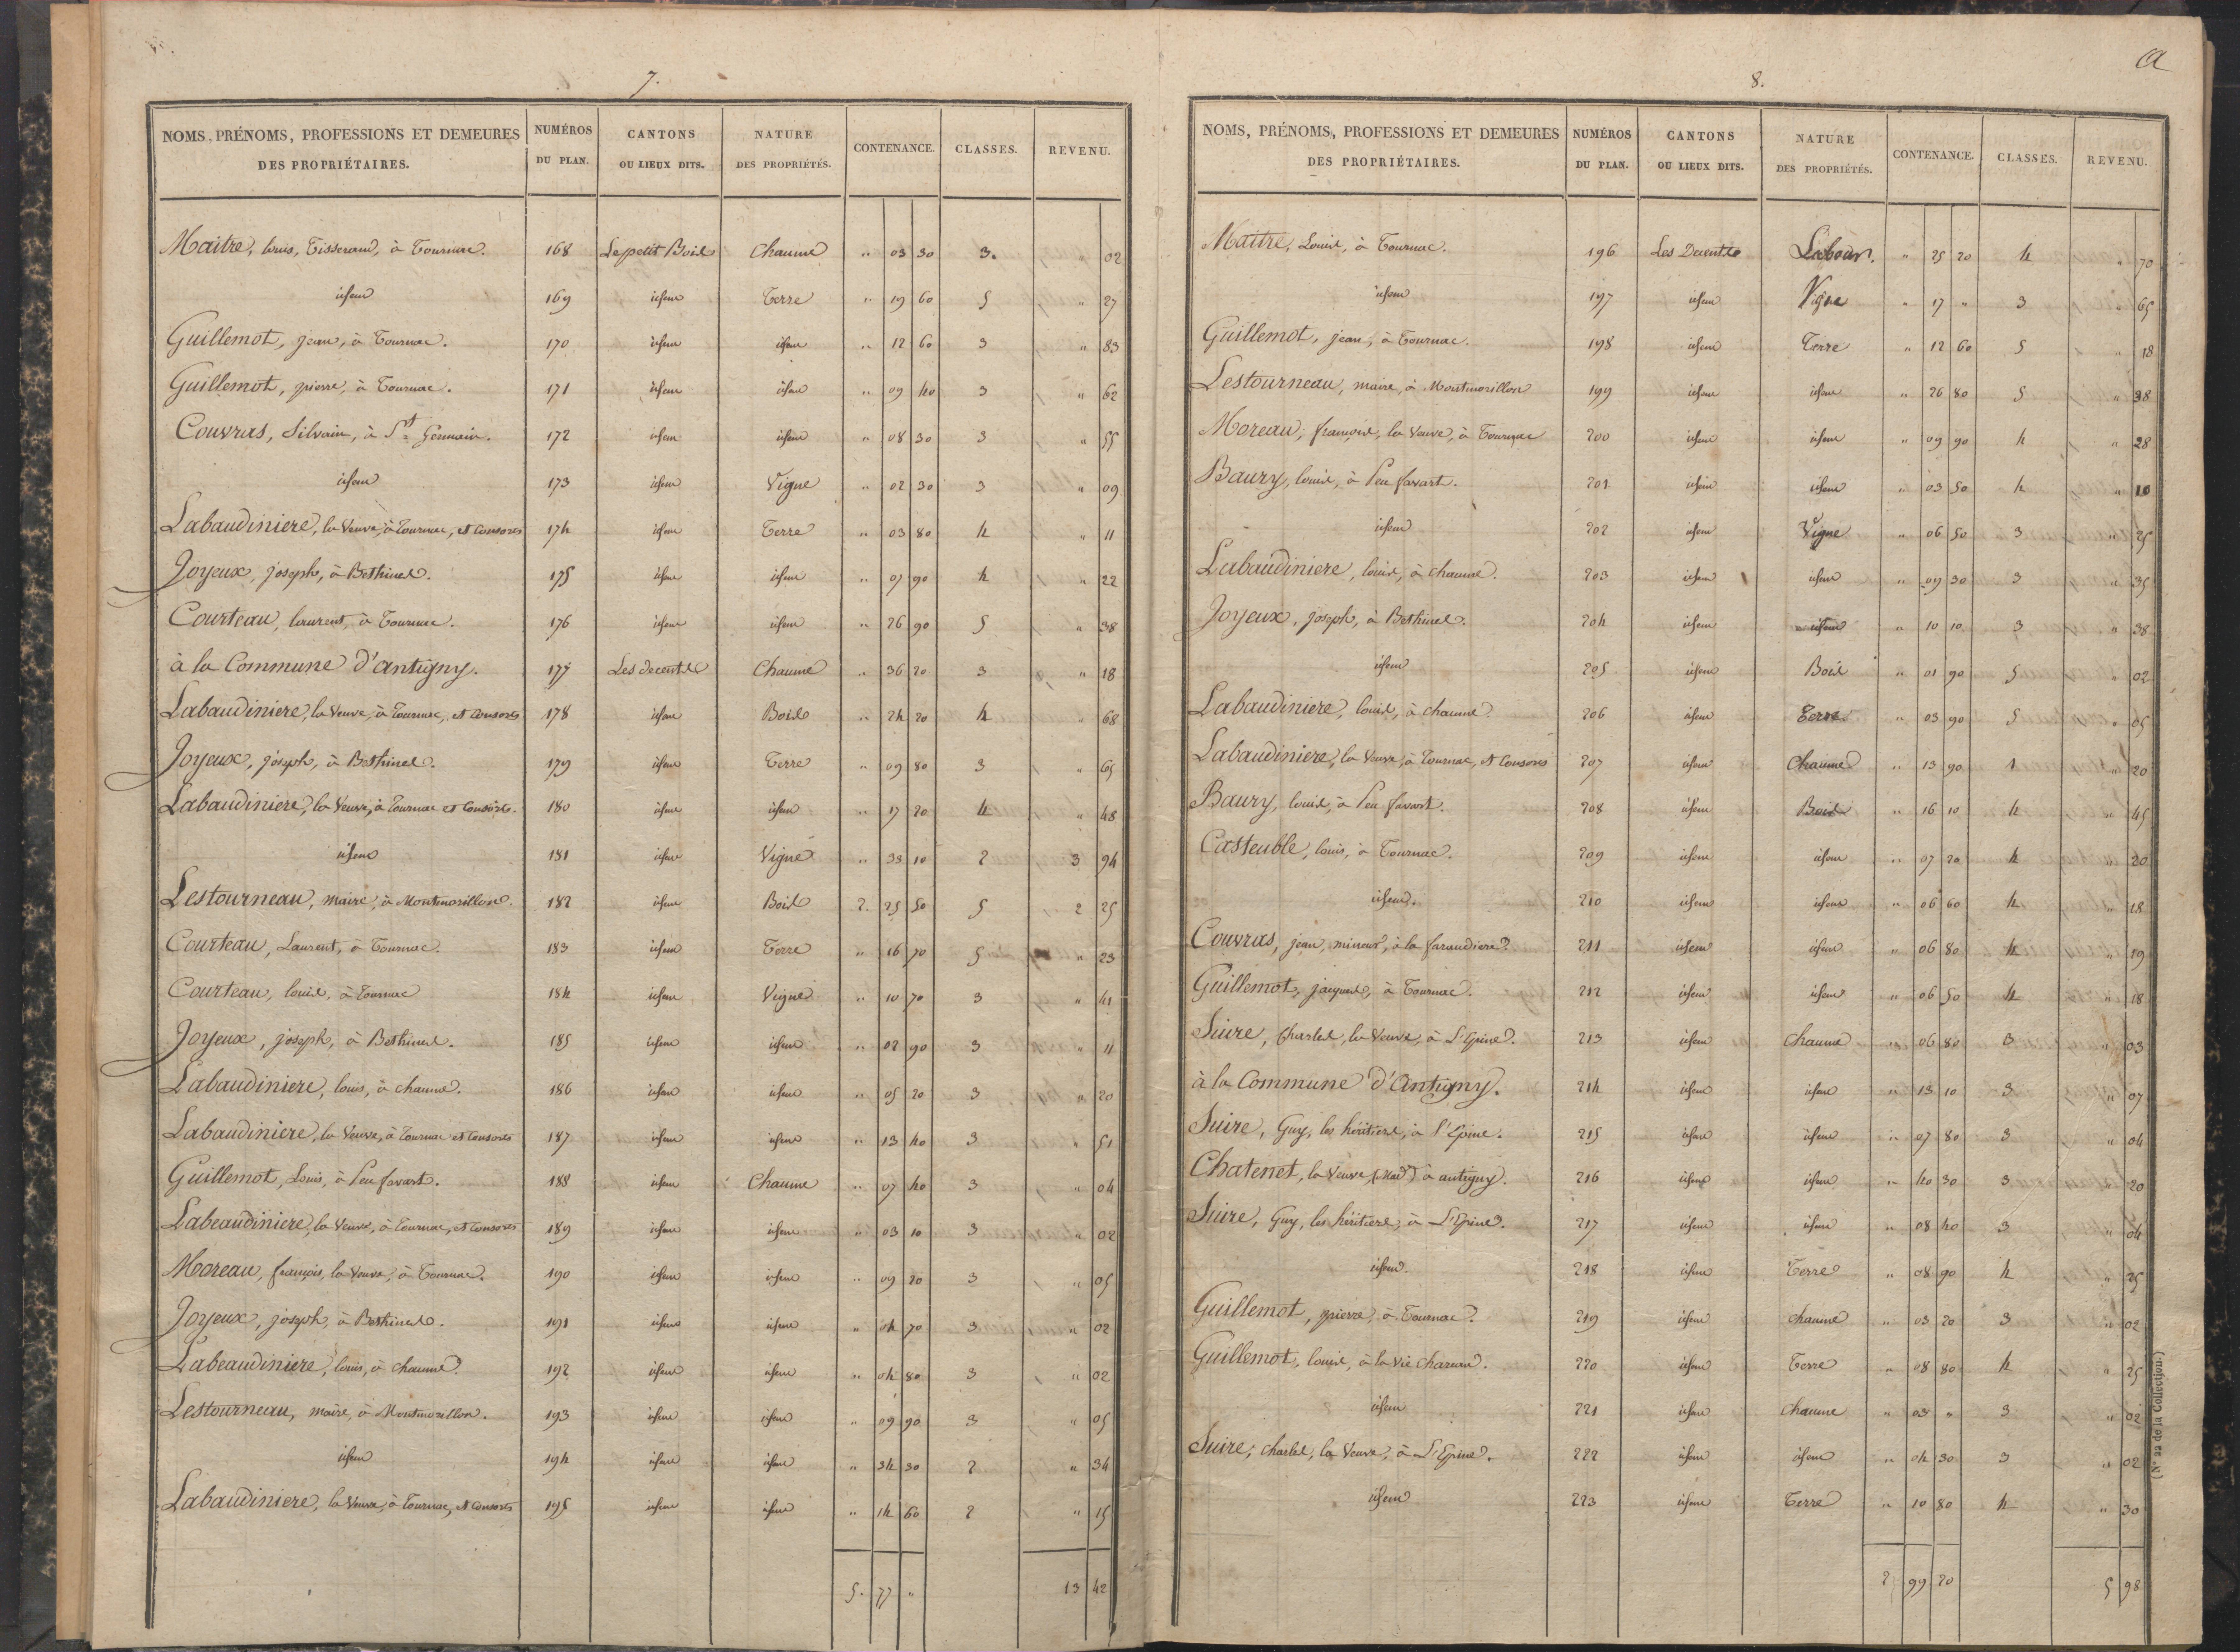 7.
NOMS, PRÉNOMS, PROFESSIONS ET DEMEURES DES PROPRIÉTAIRES. NUMÉROS DU PLAN. CANTONS OU LIEUX DITS. NATURE DES PROPRIÉTÉS. CONTENANCE. CLASSES. REVENU.
Maitre, louis, Tisserand, à Tournac. 168 Le petit Bois Chaume " 03 30 3. " 02
idem 169 idem Terre " 19 60 5 " 27
Guillemot, jean, à Tournac. 170 idem idem " 12 60 3 " 83
Guillemot, pierre, à Tournac. 171 idem idem " 09 40 3 " 62
Couvras, Silvain, à St Germain. 172 idem idem " 08 30 3 " 55
idem 173 idem Vigne " 02 30 3 " 09
Labaudiniere, la Veuve, à Tournac, et Consors 174 idem Terre " 03 80 4 " 11
Joyeux, joseph, à Bethines. 175 idem idem " 07 90 4 " 22
Courteau, laurent, à Tournac. 176 idem idem " 26 90 5 " 38
à la Commune d'antigny. 177 Les decents Chaume " 36 20 3 " 18
Labaudiniere, la Veuve, à Tournac, et Consors 178 idem Bois " 24 20 4 " 68
Joyeux, joseph, à Bethines. 179 idem Terre " 09 80 3 " 65
Labaudiniere, la Veuve, à Tournac et Consors. 180 idem idem " 17 20 4 " 48
idem 181 idem Vigne " 38 10 2 3 94
Lestourneau, maire, à Montmorillon. 182 idem Bois 2. 25 50 5 2 25
Courteau, Laurent, à Tournac. 183 idem Terre " 16 70 5 " 23
Courteau, louis, à Tournac 184 idem Vigne " 10 70 3 " 41
Joyeux, joseph, à Bethines. 185 idem idem " 02 90 3 " 11
Labaudiniere, louis, à chaume. 186 idem idem " 05 20 3 " 20
Labaudiniere, la Veuve, à Tournac et Consors 187 idem idem " 13 40 3 " 51
Guillemot, Louis, à Peu favart. 188 idem Chaume " 07 40 3 " 04
Labeaudiniere, la Veuve, à Tournac, et Consors 189 idem idem " 03 10 3 " 02
Moreau, françois, la Veuve, à Tournac. 190 idem idem " 09 20 3 " 05
Joyeux, joseph, à Bethines. 191 idem idem " 04 70 3 " 02
Labeaudiniere, louis, à chaume. 192 idem idem " 04 80 3 " 02
Lestourneau, maire, à Montmorillon. 193 idem idem " 09 90 3 " 05
idem 194 idem idem " 34 30 2 " 34
Labaudiniere, la Veuve, à Tournac, et Consors 195 idem idem " 14 60 2 " 15
5. 77 " 13 42
8.
a
NOMS, PRÉNOMS, PROFESSIONS ET DEMEURES DES PROPRIÉTAIRES. NUMÉROS DU PLAN. CANTONS OU LIEUX DITS. NATURE DES PROPRIÉTÉS. CONTENANCE. CLASSES. REVENU.
Maitre, Louis, à Tournac. 196 Les Decents Labour. " 25 20 4 " 70
idem 197 idem Vigne " 17 " 3 " 65
Guillemot, jean, à Tournac. 198 idem Terre " 12 60 5 " 18
Lestourneau, maire, à Montmorillon 199 idem idem " 26 80 5 " 38
Moreau, françois, la Veuve, à Tournac 200 idem idem " 09 90 4 " 28
Baury, louis, à Peu favart. 201 idem idem " 03 50 4 " 10
idem 202 idem Vigne " 06 50 3 " 25
Labaudiniere, louis, à chaume. 203 idem idem " 09 30 3 " 35
Joyeux, joseph, à Bethines. 204 idem idem " 10 10 3 " 38
idem 205 idem Bois " 01 90 5 " 02
Labaudiniere, louis, à chaume. 206 idem Terre " 03 90 5 " 05
Labaudiniere, la Veuve, à Tournac, et Consors 207 idem Chaume " 13 90 1 " 20
Baury, louis, à Peu favart. 208 idem Bois " 16 10 4 " 45
Casteuble, louis, à Tournac. 209 idem idem " 07 20 4 " 20
idem. 210 idem idem " 06 60 4 " 18
Couvras, jean, mineur, à la faraudiere. 211 idem idem " 06 80 4 " 19
Guillemot, jacques, à Tournac. 212 idem idem " 06 50 4 " 18
Suire, Charles, la Veuve, à L'Epine. 213 idem Chaume " 06 80 3 " 03
à la Commune d'Antigny. 214 idem idem " 13 10 3 " 07
Suire, Guy, les héritiers, à l'Epine. 215 idem idem " 07 80 3 " 04
Chatenet, la Veuve, à antigny. 216 idem idem " 40 30 3 " 20
Suire, Guy, les héritiers, à L'Epine. 217 idem idem " 08 40 3 " 04
idem. 218 idem Terre " 08 90 4 " 25
Guillemot, pierre, à Tournac. 219 idem chaume " 03 20 3 " 02
Guillemot, louis, à la Vie chareau. 220 idem Terre " 08 80 4 " 25
idem 221 idem chaume " 03 " 3 " 02
Suire, charles, la Veuve, à L'Epine. 222 idem idem " 04 30 3 " 02
idem 223 idem Terre " 10 80 4 " 30
2 99 20 5 98
(N° 22 de la Collection.)